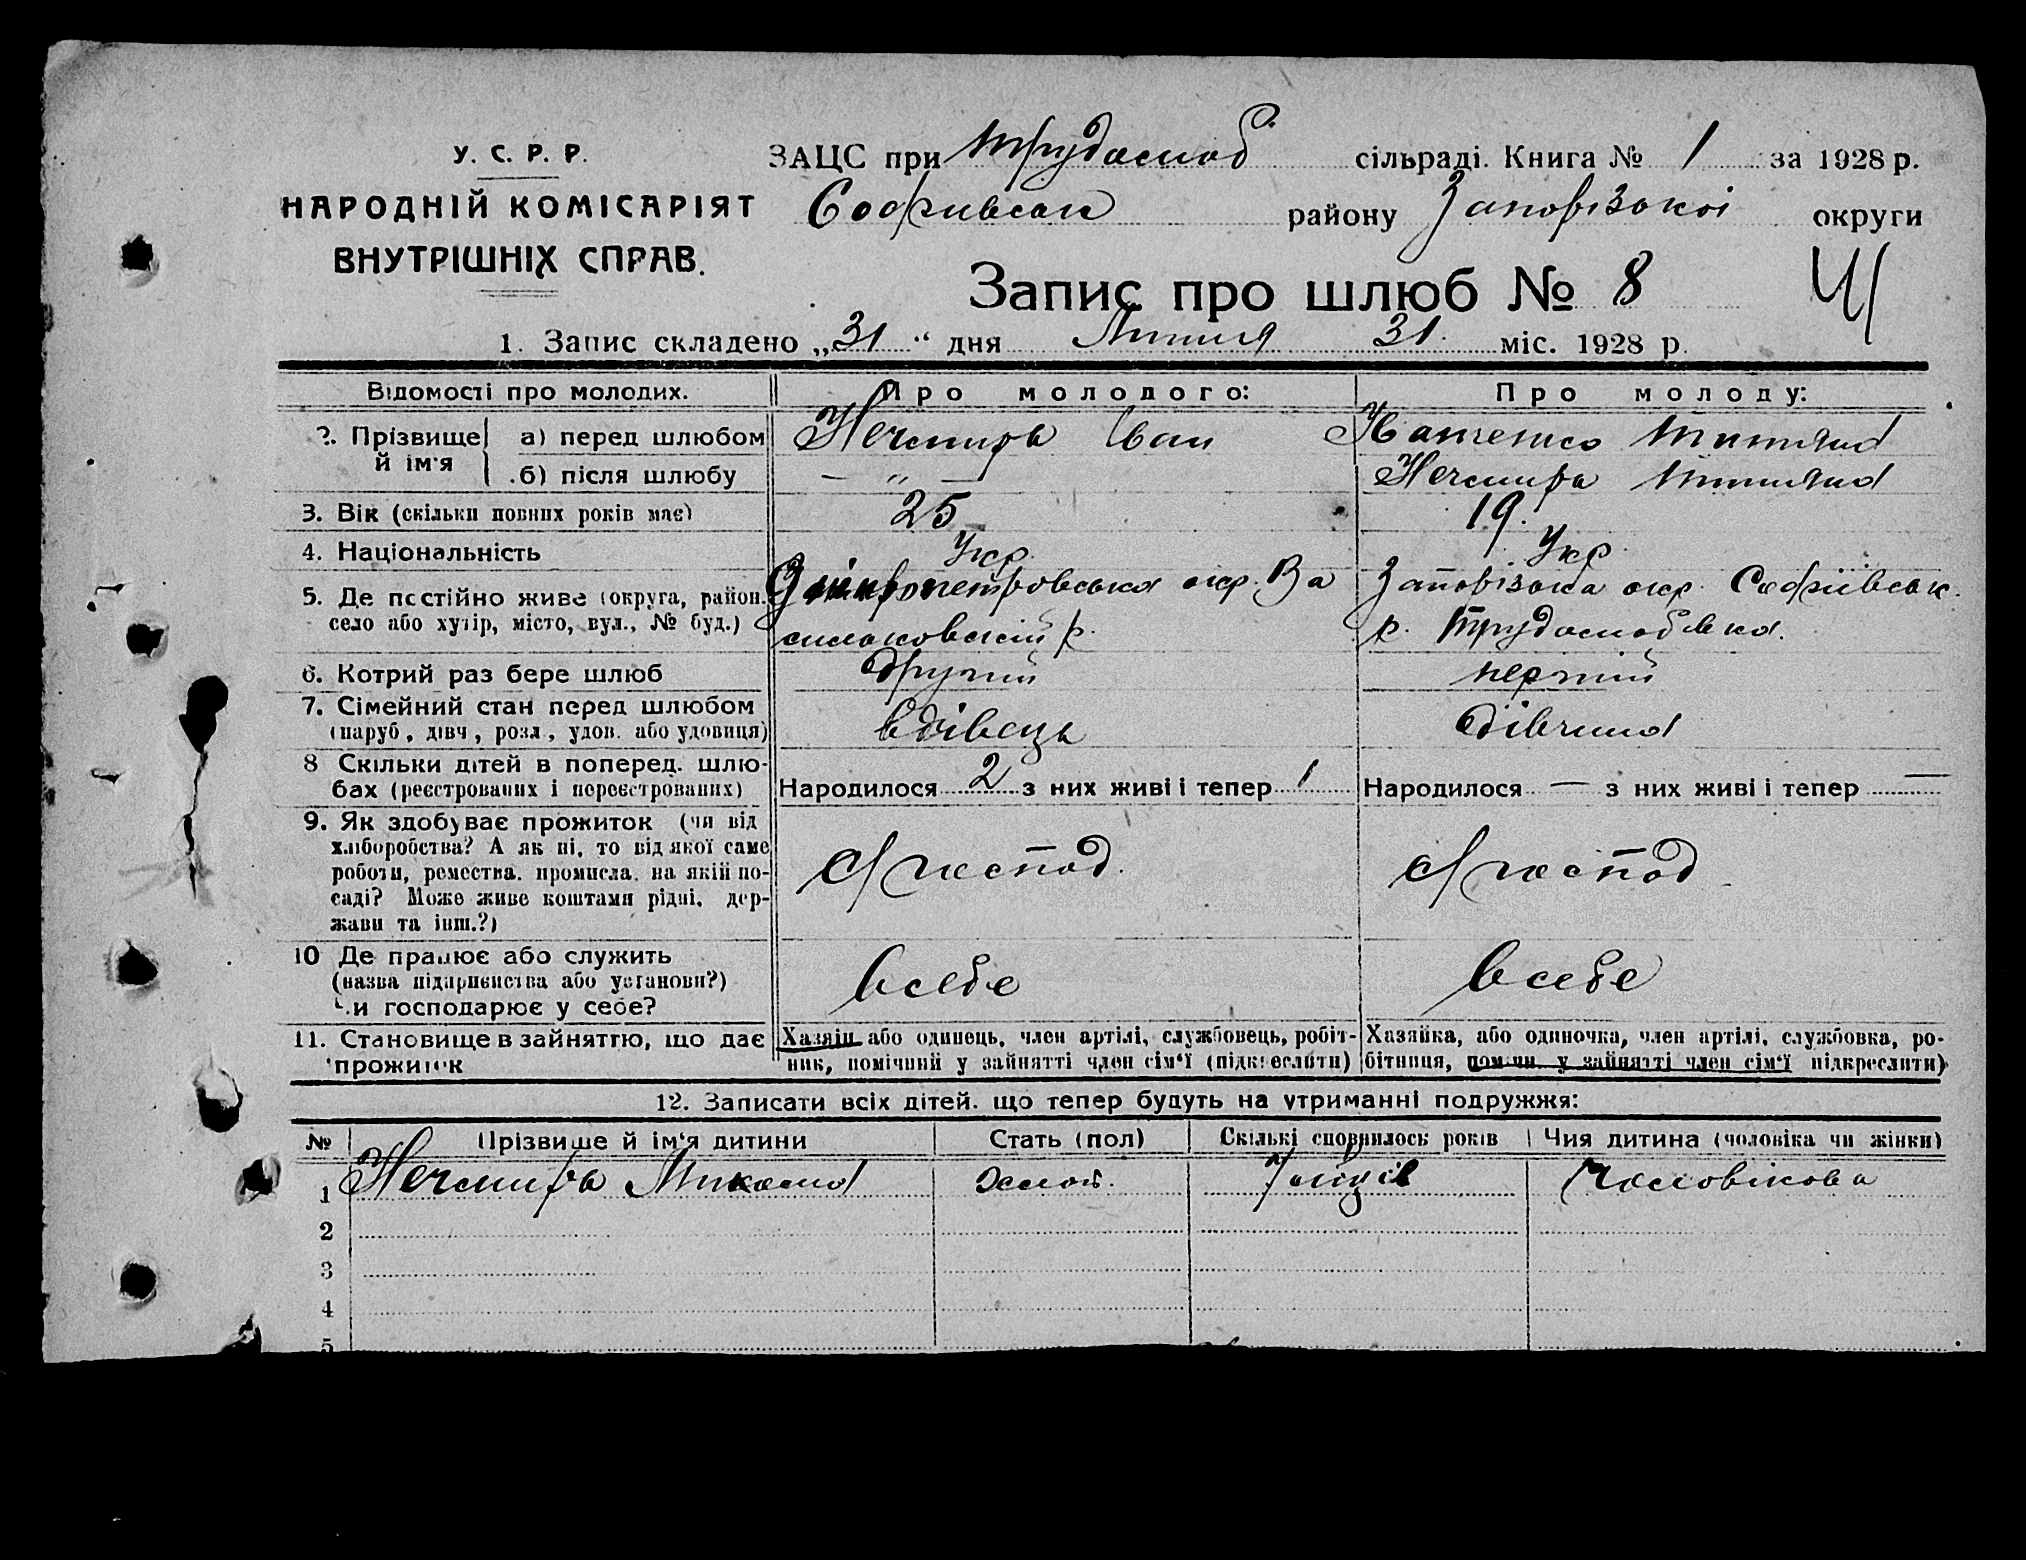 У. С. Р. Р.
НАРОДНІЙ КОМІСАРІЯТ
ВНУТРІШНІХ СПРАВ.
ЗАЦС при Трудолюб. сільраді. Книга № 1 за 1928 р.
Софиивськ району Запорізької округи
Запис про шлюб № 8
1. Запис складено „31“ дня Липня 31 міс. 1928 р.
Відомості про молодих. Про молодого: Про молоду:
2. Прізвище й ім'я { а) перед шлюбом Нечмира Іван Тетяна
б) після шлюбу — „ — Нечмира
3. Вік (скільки повних років має) 25 19.
4. Національність Укр. Укр.
5. Де постійно живе (округа, район. село або хутір, місто, вул., № буд.) Дніпропетровська окр. Ва
сильковський р.
Запорізька окр. Софіівськ.
р. Трудолюбівка.
6. Котрий раз бере шлюб другий первий
7. Сімейний стан перед шлюбом (паруб., дівч., розл., удов. або удовиця) вдівець дівчина
8 Скільки дітей в поперед. шлюбах (реєстрованих і нереєстрованих) Народилося 2 з них живі і тепер 1 Народилося — з них живі і тепер —
9. Як здобуває прожиток (чи від
хліборобства? А як ні, то від якої саме
роботи, ремества, промисла, на якій по-
саді? Може живе коштами рідні, дер-
жави та інш.?)
с/господ. с/господ.
10 Де працює або служить
(назва підприємства або установи?)
Чи господарює у себе?
в себе в себе
11. Становище в зайняттю, що дає
прожиток
Хазяїн або одинець, член артілі, службовець, робіт-
ник, помічний у зайнятті член сім'ї (підкреслити)
Хазяйка, або одиночка, член артілі, службовка, ро-
бітниця, помічн. у зайнятті член сім'ї підкреслити)
12. Записати всіх дітей, що тепер будуть на утриманні подружжя:
№ Прізвище й ім'я дитини Стать (пол) Скількі сповнилось років Чия дитина (чоловіка чи жінки)
1 Нечмира Микола 7 місяців Чоловікова
2
3
4
5